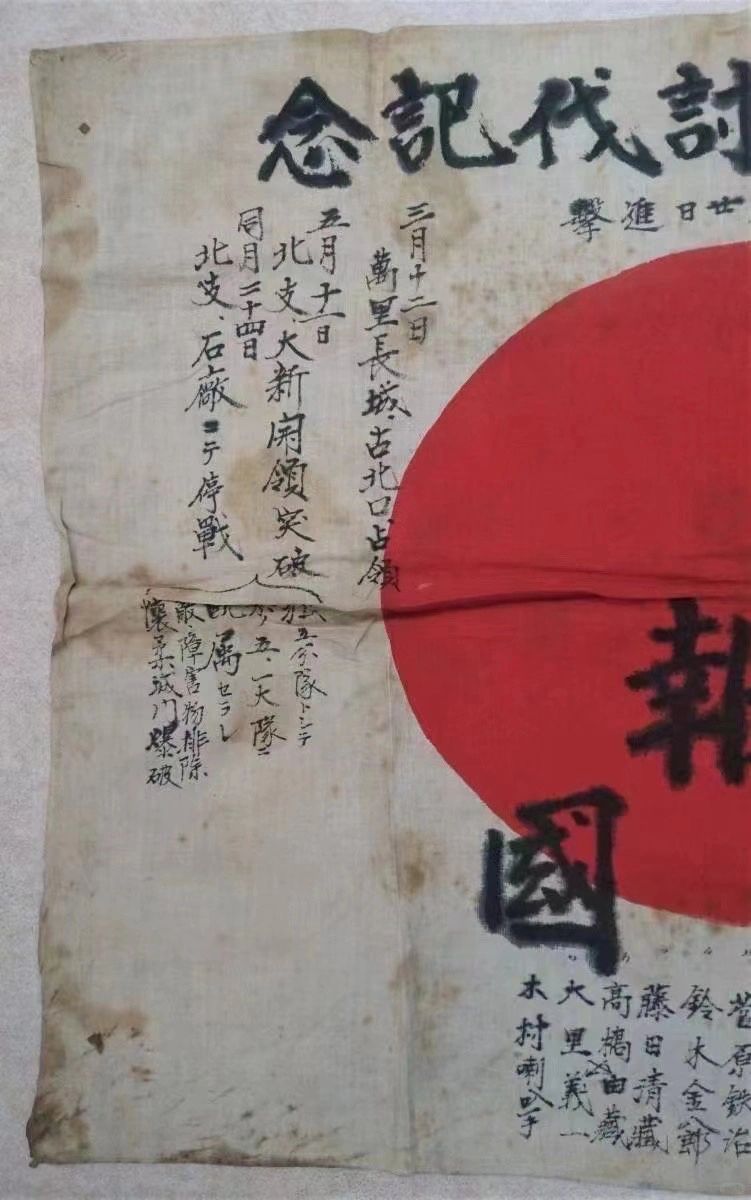 討伐記念
廿日進擊
三月十二日
萬里長城、古北口占領
五月十一日
北支、大新開領突破
同月二十四日
北支、石廠ニテ停戰
五分隊トシテ
五、一大隊ニ
配属セラレ
敵障害物排除
懷柔城門爆破
報
國
菅原鉄治
鈴木金八郎
藤田清藏
高橋由藏
大里義一
木村喇叭手